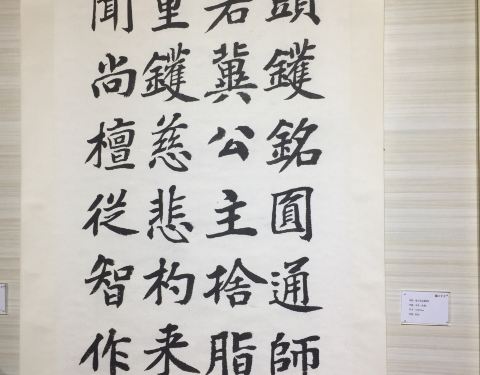 頭鑊銘圓通師
冀公主捨脂
重鑊慈悲杓来
聞尚檀從智作